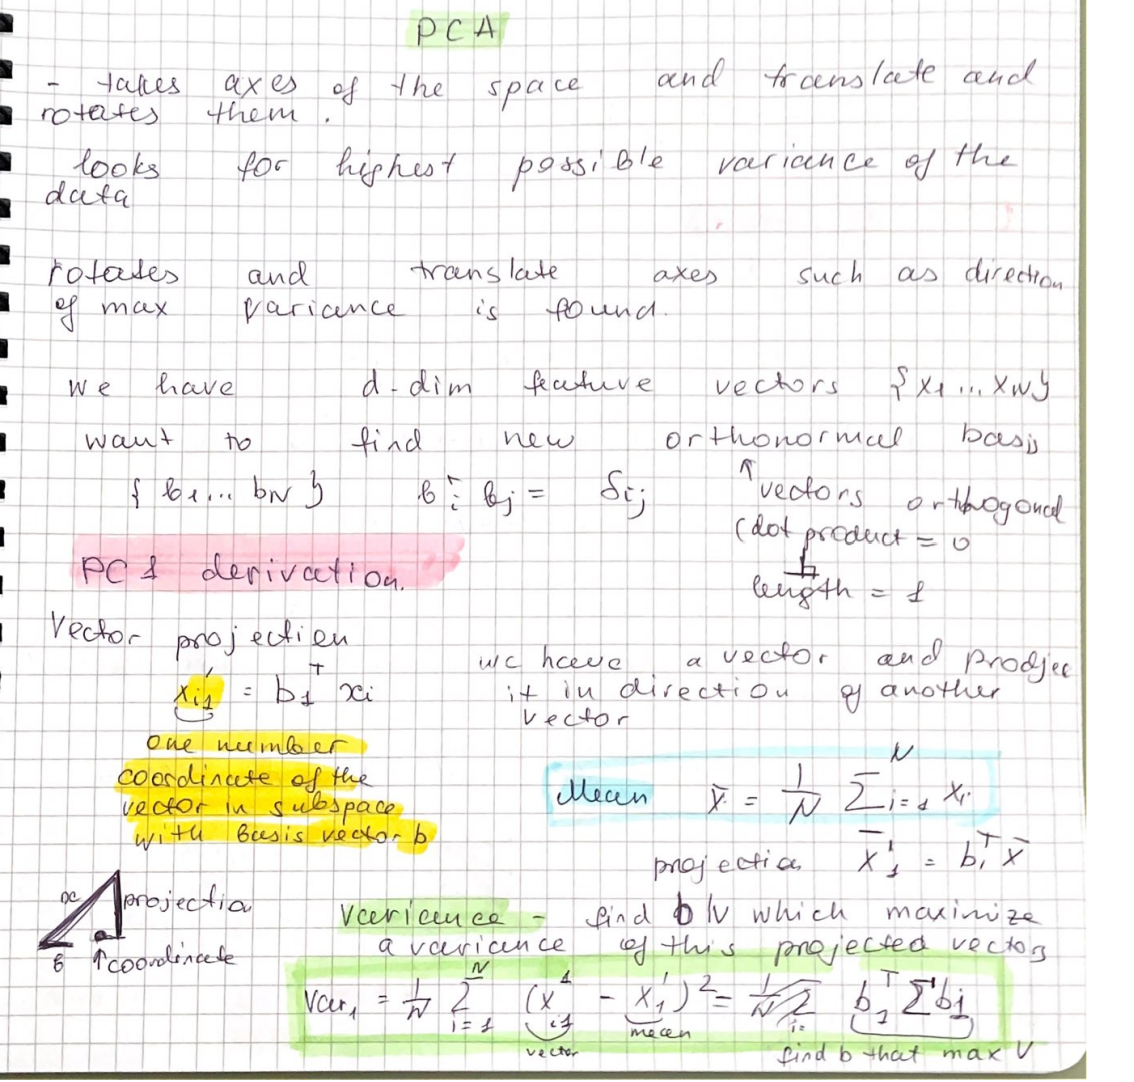 PCA
- takes axes of the space and translate and
rotates them.
looks for highest possible variance of the
data
rotates and translate axes such as direction
of max variance is found.
we have d-dim feature vectors {x1 ... xN}
want to find new orthonormal basis
{b1... bN} bi^T bj = δij
↑vectors orthogonal
(dot product = 0
length = 1
PC1 derivation.
Vector projection
x'i1 = b1^T xi
we have a vector and prodjec
it in direction of another
vector
one number
coordinate of the
vector in subspace
with basis vector b
Mean x̄ = 1/N Σ_{i=1}^N xi
projection x̄'1 = b1^T x̄
x projection
b ↑coordinate
variance - find b IV which maximize
a variance of this projected vectors
var1 = 1/N Σ_{i=1}^N (x'i1 - x̄'1)² = b1^T Σ b1
vector mean
find b that max V